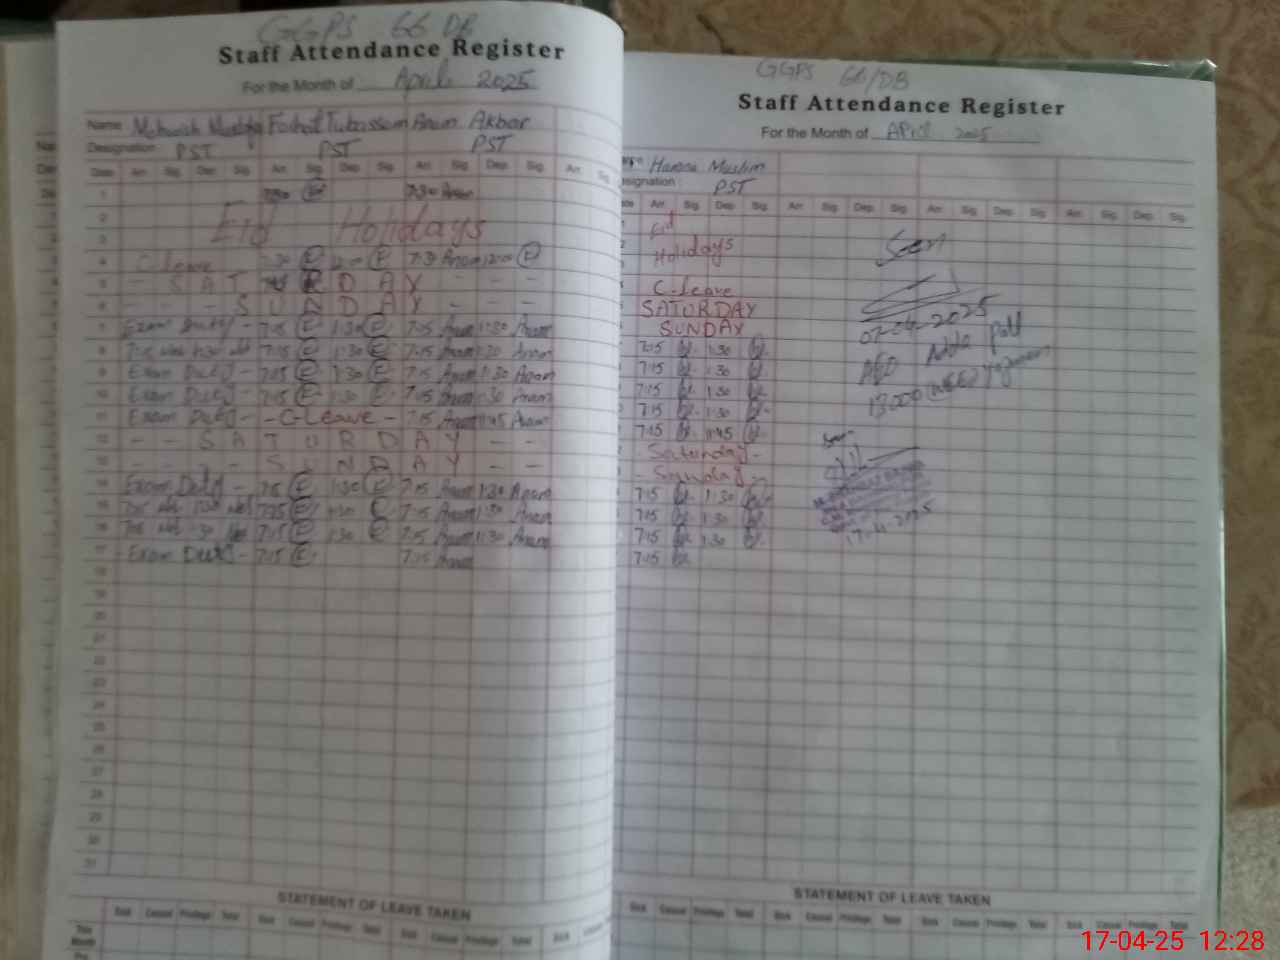 GGPS 66 DB
Staff Attendance Register
For the Month of April 2025
Name Mehwish Mushtaq Farhat Tubassam Anum Akbar
Designation PST PST PST
Date Arr. Sig. Dep. Sig. Arr. Sig. Dep. Sig. Arr. Sig. Dep. Sig. Arr. Sig.
1 7:30 7:30 Anam
2 Eid Holidays
3
4 C.Leave 7:30 12:00 7:30 Anam 12:00
5 - SATURDAY - -
6 - - SUNDAY - - -
7 Exam Duty - 7:15 1:30 7:15 Anam 1:30 Anam
8 7:15 1:30 7:15 1:30 7:15 Anam 1:30 Anam
9 Exam Duty - 7:15 1:30 7:15 Anam 1:30 Anam
10 Exam Duty 7:15 1:30 7:15 Anam 1:30 Anam
11 Exam Duty - - C-Leave - 7:15 Anam 11:45 Anam
12 - - SATURDAY - -
13 - - - SUNDAY - -
14 Exam Duty - 7:15 1:30 7:15 Anam 1:30 Anam
15 7:15 1:30 7:15 1:30 7:15 Anam 1:30 Anam
16 7:15 1:30 7:15 1:30 7:15 Anam 1:30 Anam
17 Exam Duty - 7:15 7:15 Anam
18
19
20
21
22
23
24
25
26
27
28
29
30
31
STATEMENT OF LEAVE TAKEN
Sick Casual Privilege Total Sick Casual Privilege Total Sick Casual Privilege Total Sick
This Month
GGPS 66/DB
Staff Attendance Register
For the Month of April 2025
Muslim
Designation PST
Arr. Sig. Dep. Sig. Arr. Sig. Dep. Sig. Arr. Sig. Dep. Sig. Arr. Sig. Dep. Sig.
Eid
Holidays
C-Leave
SATURDAY
SUNDAY
7:15 1:30
7:15 1:30
7:15 1:30
7:15 1:30
7:15 11:45
- Saturday -
- Sunday -
7:15 1:30
7:15 1:30
7:15 1:30
7:15
Seen
07-04-2025
AEO Adda Pull
13000 (WEE)
Seen
17-4-2025
STATEMENT OF LEAVE TAKEN
Sick Casual Privilege Total Sick Casual Privilege Total Sick Casual Privilege Total Sick Casual Privilege Total
17-04-25 12:28